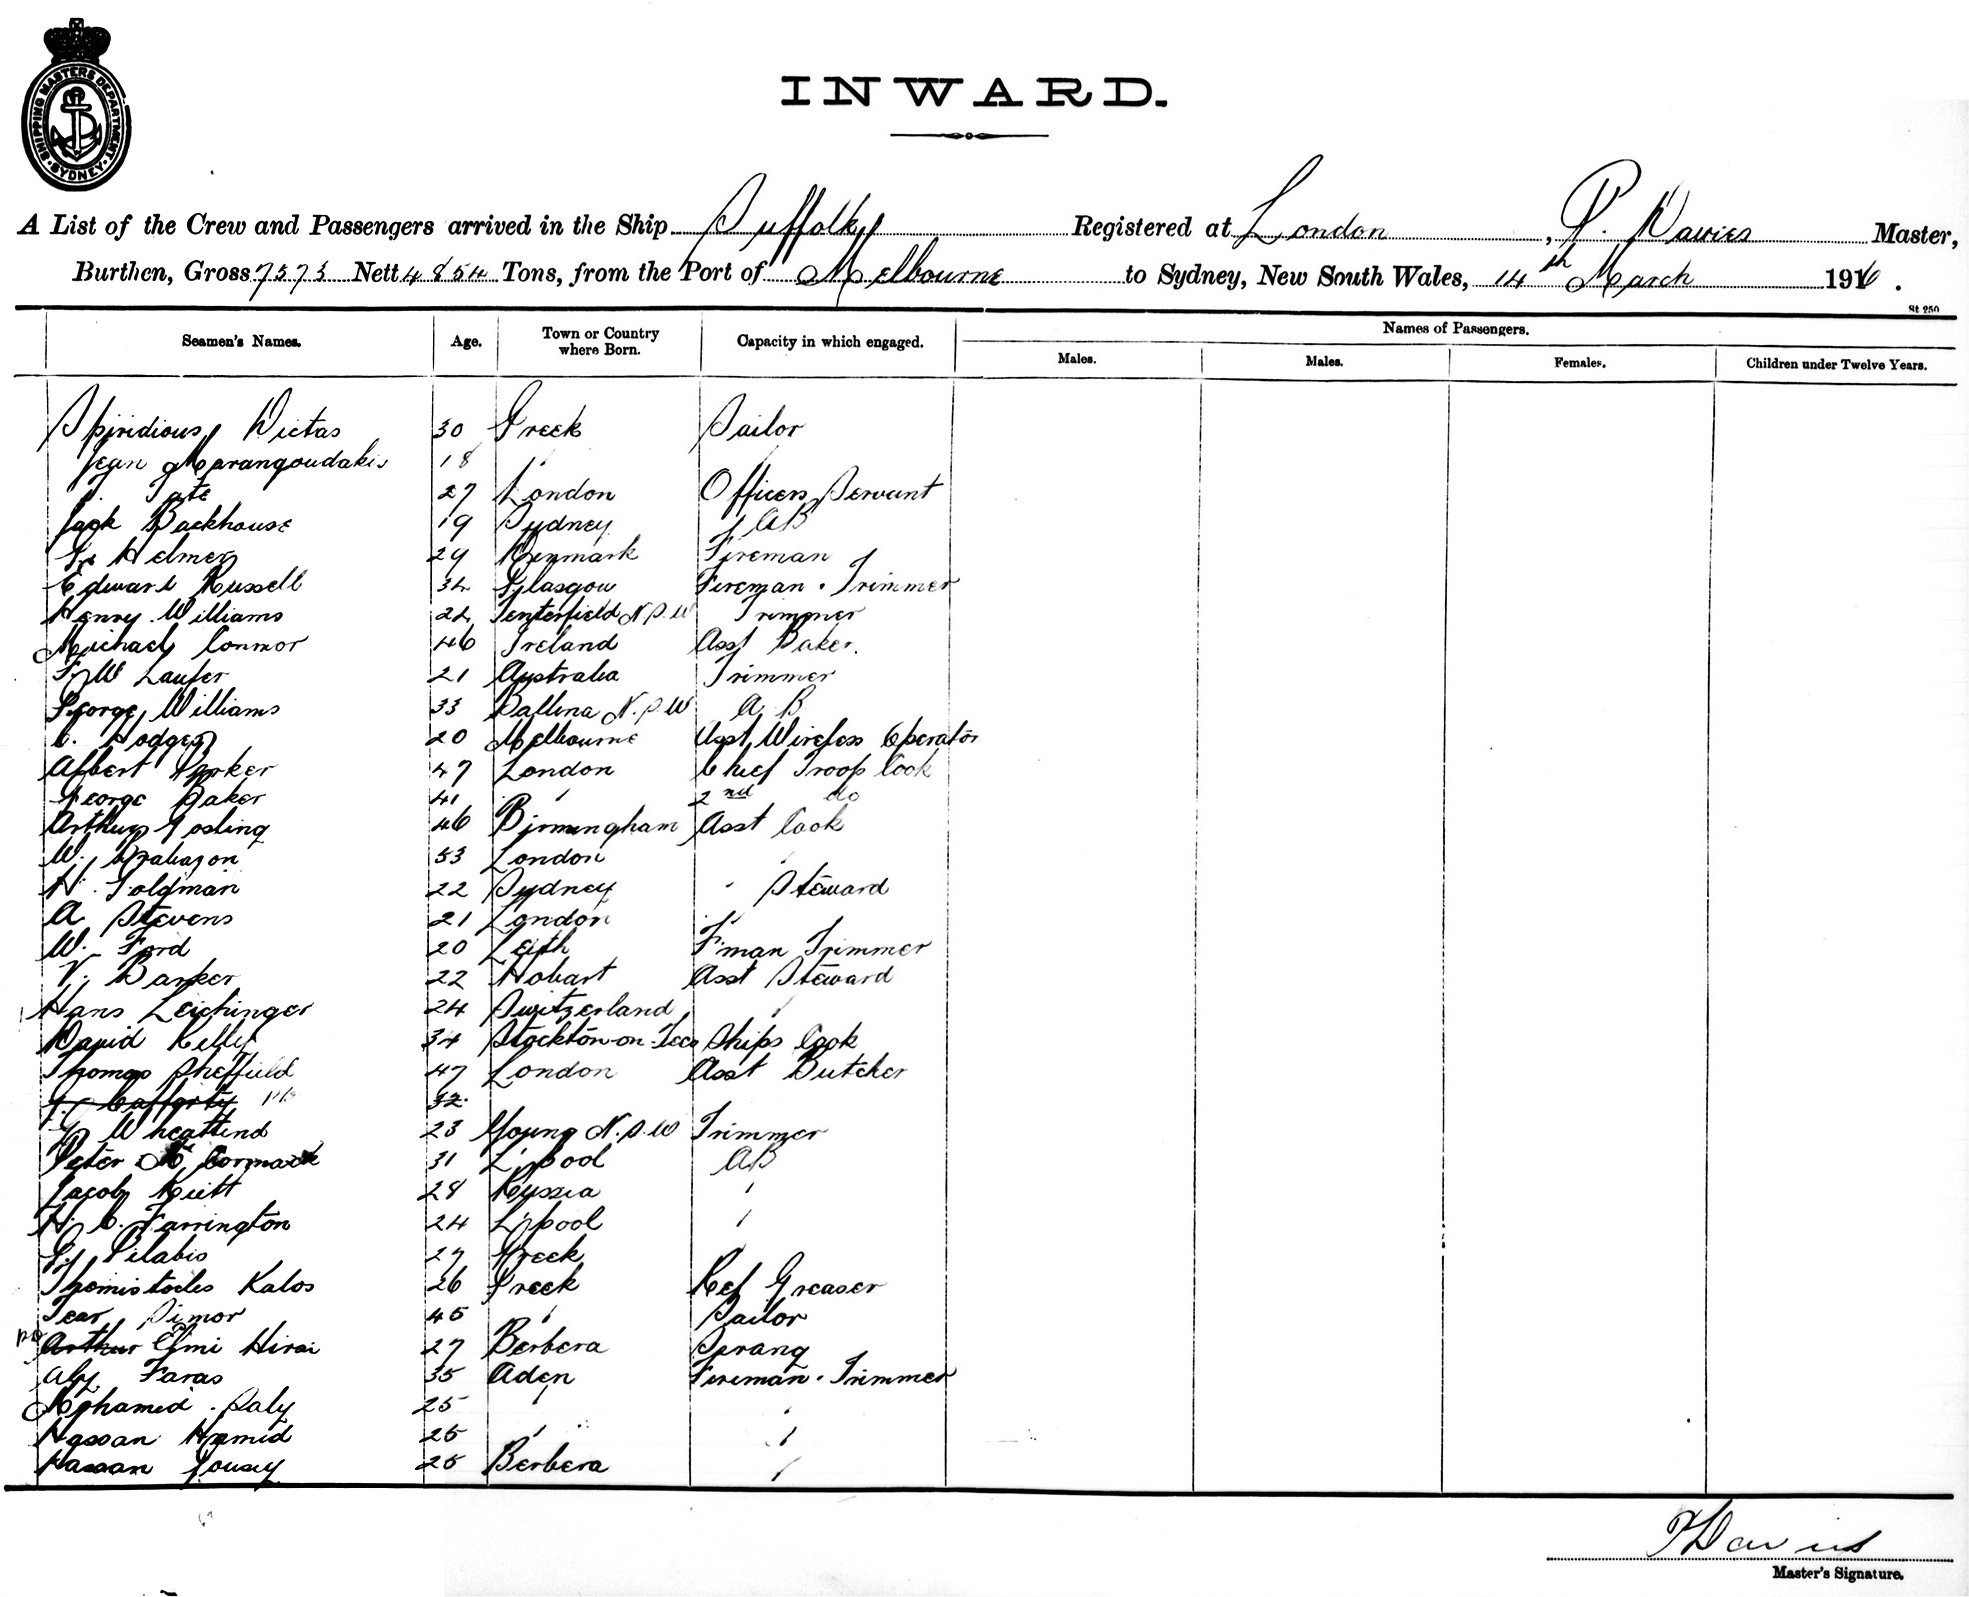 SHIPPING MASTERS DEPARTMENT · SYDNEY ·
INWARD.
A List of the Crew and Passengers arrived in the Ship Suffolk Registered at London, P. Davies Master,
Burthen, Gross 7573 Nett 4854 Tons, from the Port of Melbourne to Sydney, New South Wales, 14th March 1916.
St 250
Seamen's Names. Age. Town or Country where Born. Capacity in which engaged. Names of Passengers.
Males. Males. Females. Children under Twelve Years.
Spiridious Victas 30 Greek Sailor
Jean Marangoudakis 18 "
J. Tate 27 London Officers Servant
Jack Backhouse 19 Sydney AB
Helmer 29 Denmark Fireman
Edward Russell 32 Glasgow Fireman · Trimmer
Henry Williams 22 Tenterfield N.S.W Trimmer
Michael Connor 46 Ireland Asst Baker.
F W Laufer 21 Australia Trimmer
George Williams 33 Ballina N.S.W A B
C. Hodges 20 Melbourne Asst Wireless Operator
Albert Parker 47 London Chief Troop Cook
George Baker 41 " 2nd do
Arthur Gosling 46 Birmingham Asst Cook
W. Brabazon 53 London "
H. Goldman 22 Sydney " Steward
A Stevens 21 London "
W. Ford 20 Leith F'man Trimmer
V. Barker 22 Hobart Asst Steward
Hans Leichinger 24 Switzerland "
David Kelly 34 Stockton-on-Tees Ships Cook
Thomas Sheffield 47 London Asst Butcher
J. Cafferty 32
Wheattend 23 Young N.S.W Trimmer
Peter McCormack 31 L'pool AB
Jacob Kutt 28 Russia "
H. C. Farrington 24 L'pool "
G. Pilabis 27 Greek
Themistocles Kalos 26 Greek Ref Greaser
Jear Simor 45 " Sailor
Arthur Elmi Hirsi 27 Berbera Serang
Aly Faras 35 Aden Fireman · Trimmer
Mohamed Saly 25 " "
Hassan Hamid 25 " "
Hassan Yousey 25 Berbera "
P Davies
Master's Signature.